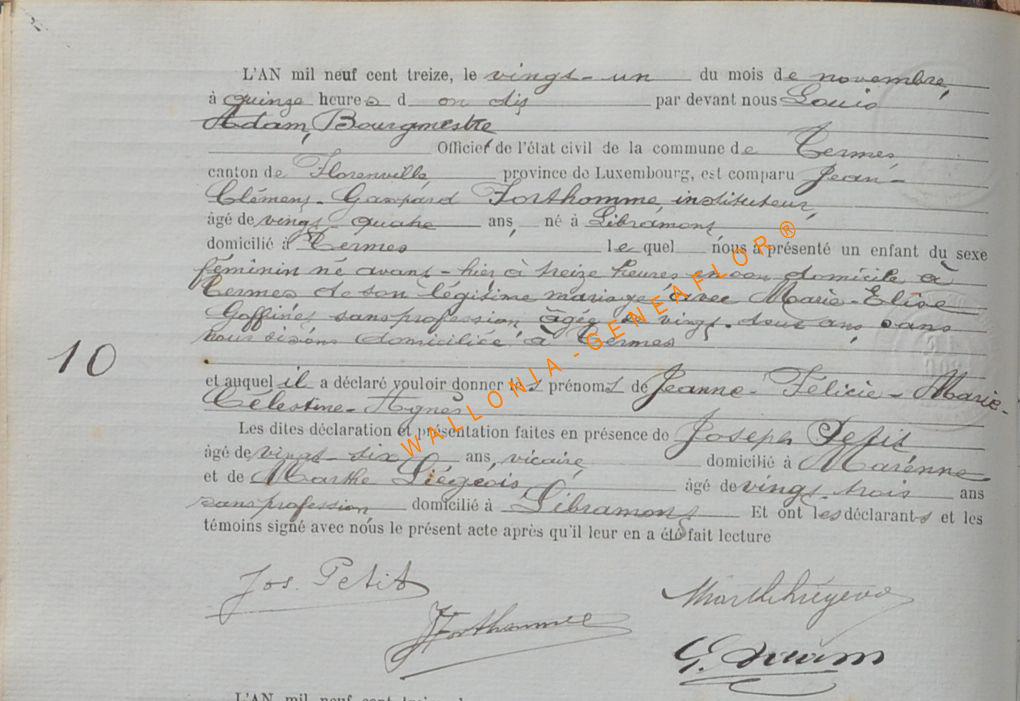 L'AN mil neuf cent treize, le vingt-un du mois de novembre,
à quinze heures d on dix par devant nous Louis
Adam, Bourgmestre
Officier de l'état civil de la commune de Termes
canton de Florenville, province de Luxembourg, est comparu Jean-
Clément-Gaspard Forthomme, instituteur,
âgé de vingt-quatre ans, né à Libramont,
domicilié à Termes lequel nous a présenté un enfant du sexe
féminin né avant-hier à treize heures en son domicile à
Termes de son légitime mariage avec Marie-Elise
Goffinet sans profession âgée de vingt-deux ans, sans
domiciliée à Termes
10
et auquel il a déclaré vouloir donner les prénoms de Jeanne-Félicie-Marie-
Célestine-Agnès
Les dites déclaration et présentation faites en présence de Joseph Petit
âgé de vingt-six ans, vicaire domicilié à Marenne
et de Marthe Liégeois, âgé de vingt-trois ans
sans profession domicilié à Libramont Et ont les déclarants et les
témoins signé avec nous le présent acte après qu'il leur en a été fait lecture
WALLONIA-GENEAFLOR®
Jos. Petit
JForthomme
L'AN mil neuf cent treize, le